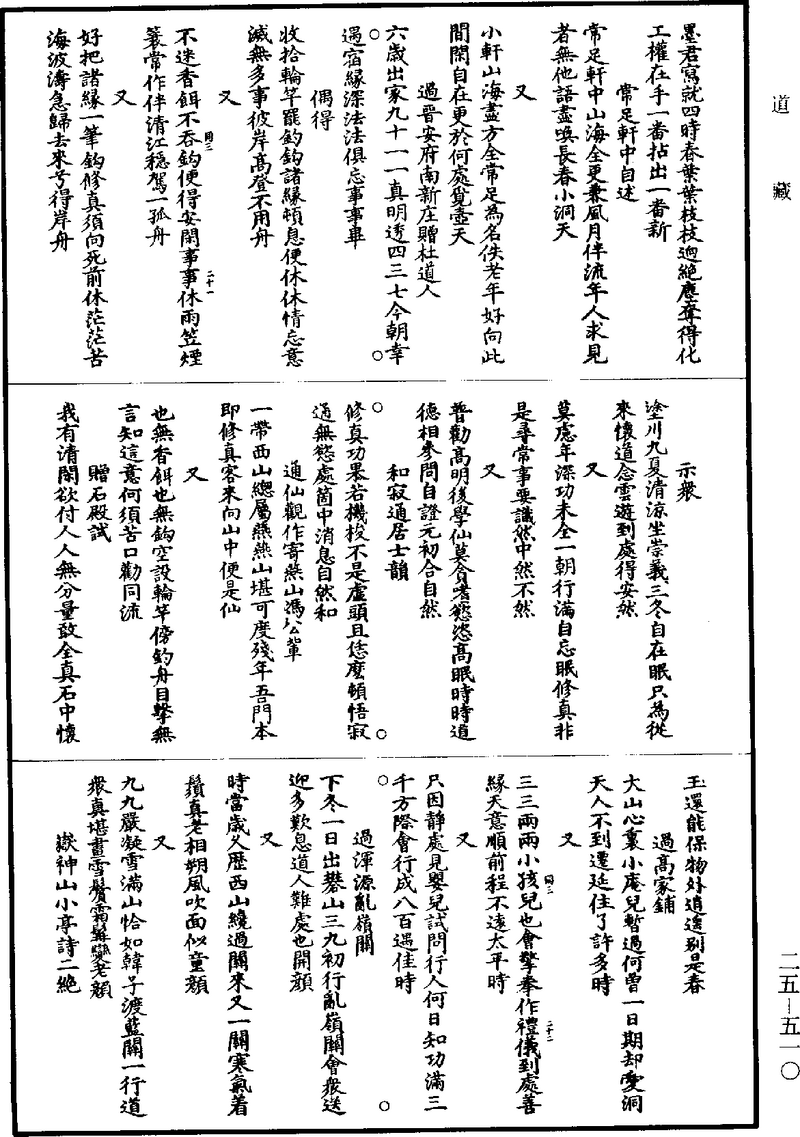 道藏
墨君寫就四時春葉葉枝枝迥絶塵奪得化
工權在手一番拈出一番新
常足軒中自述
常足軒中山海全更兼風月伴流年人求見
者無他語盡喚長春小洞天
又
小軒山海盡方全常足為名佚老年好向此
間閑自在更於何處覓壺天
過晉安府南新庄贈杜道人
六歲出家九十一一真明透四三七今朝幸
遇宿緣深法法俱忘事事畢
偶得
收拾輪竿罷釣鈎諸緣頓息便休休情忘意
滅無多事彼岸高登不用舟
又
不迷香餌不吞鈎便得安閑事事休雨笠煙
簑常作伴清江穩駕一孤舟
又
好把諸緣一筆鈎修真須向死前休茫茫苦
海波濤急歸去來兮得岸舟
二十一
示衆
塗川九夏清涼坐崇義三冬自在眠只為從
來懷道念雲遊到處得安然
又
莫慮年深功未全一朝行滿自忘眠修真非
是尋常事要識然中然不然
又
普勸高明後學仙莫貪嗜慾恣高眠時時道
德相參問自證元初合自然
和寂通居士韻
修真功果若機梭不是盧頭且恁麼頓悟寂
通無慾處箇中消息自然和
通仙觀作寄燕山馮公輩
一帶西山總屬燕燕山堪可度殘年吾門本
即修真客來向山中便是仙
又
也無香餌也無鈎空設輪竿傍釣舟目擊無
言知這意何須苦口勸同流
贈石殿試
我有清閑欲付人人無分量敢全真石中懷
玉還能保物外逍遙别是春
過高家鋪
大山心裏小庵兒暫過何曾一日期却愛洞
天人不到遷延住了許多時
又
三三兩兩小孩兒也會擎拳作禮儀到處善
緣天意順前程不遠太平時
二十二
又
只因靜處見嬰兒試問行人何日知功滿三
千方際會行成八百遇佳時
過渾源亂嶺關
下冬一日出礬山三九初行亂嶺關會衆送
迎多歎息道人難處也開顏
又
時當歲久歷西山纔過關來又一關寒氣着
鬚真老相朔風吹面似童顏
又
九九嚴凝雪滿山恰如韓子渡藍關一行道
衆真堪畫雪鬢霜髯變老顏
嶽神山小亭詩二絶
二五—五一〇